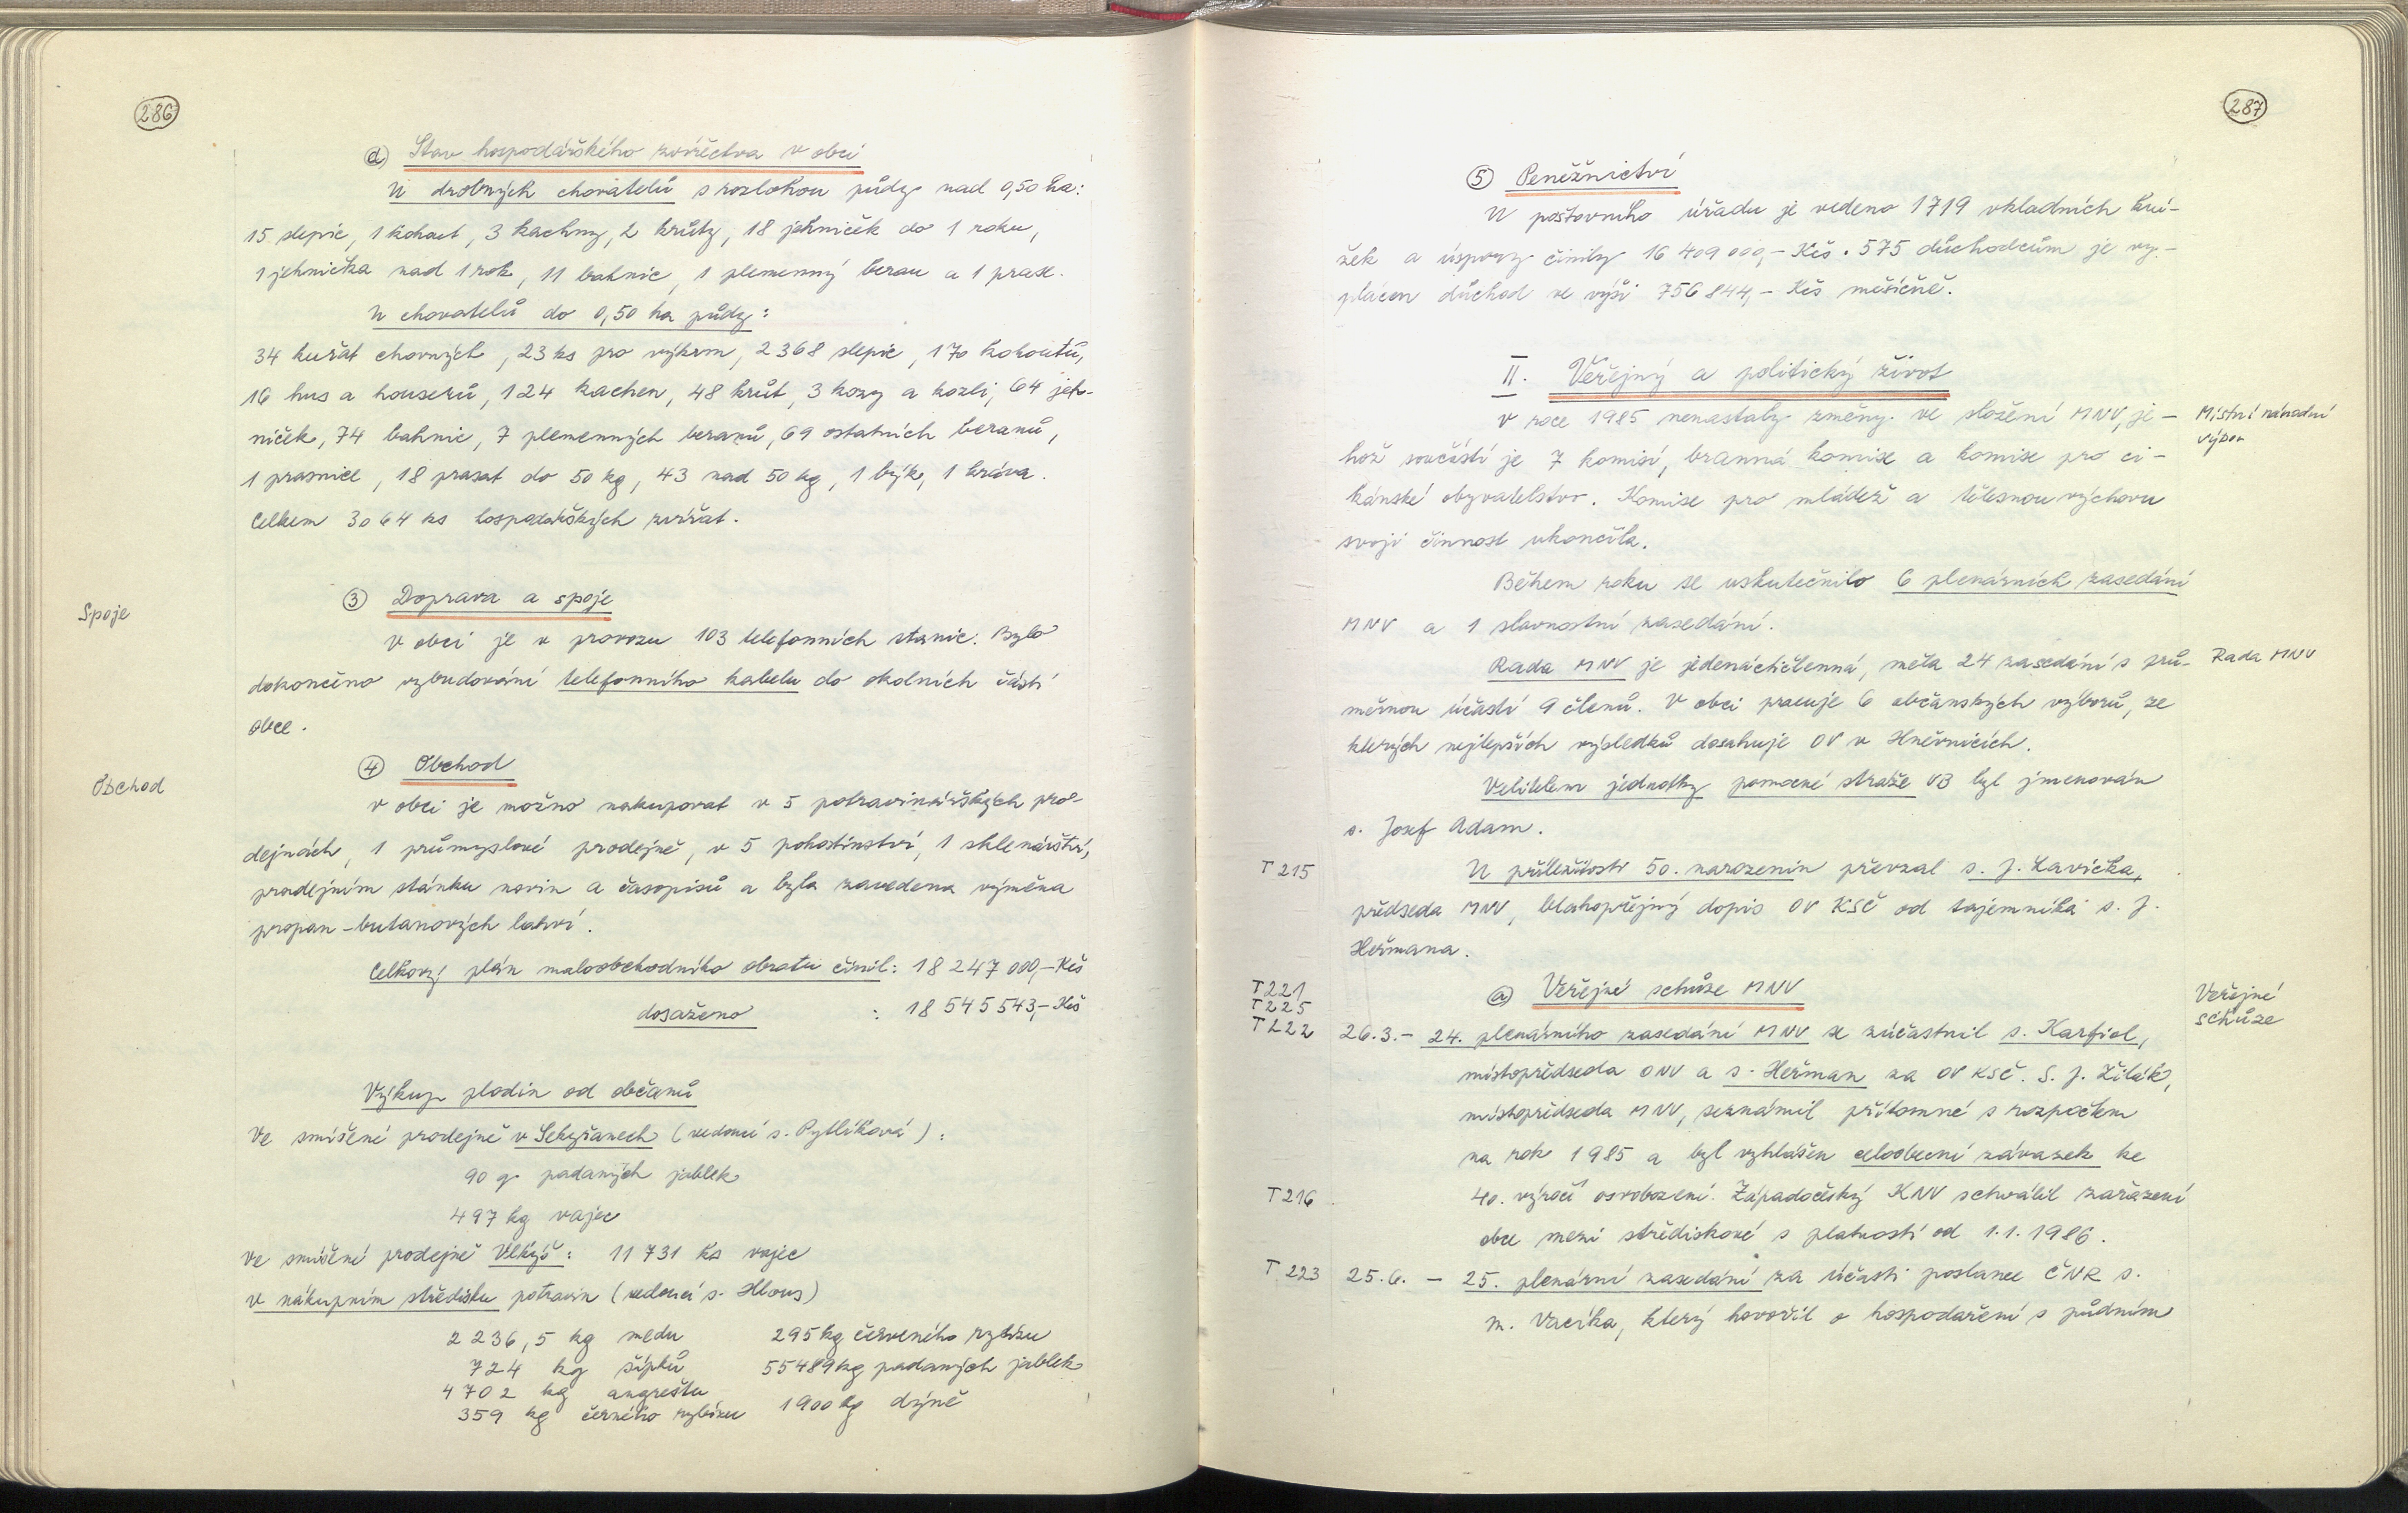 286
d) Stav hospodářského zvířectva v obci
U drobných chovatelů s rozlohou půdy nad 0,50 ha:
15 slepic, 1 kohout, 3 kachny, 2 krůty, 18 jehniček do 1 roku,
1 jehnička nad 1 rok, 11 bahnic, 1 plemenný beran a 1 prase.
U chovatelů do 0,50 ha půdy:
34 kuřat chovných, 23 ks pro výkrm, 2368 slepic, 170 kohoutů,
16 hus a houserů, 124 kachen, 48 krůt, 3 kozy a kozli, 64 jeh-
niček, 74 bahnic, 7 plemenných beranů, 69 ostatních beranů,
1 prasnice, 18 prasat do 50 kg, 43 nad 50 kg, 1 býk, 1 kráva.
Celkem 3064 ks hospodářských zvířat.
③ Doprava a spoje
Spoje
V obci je v provozu 103 telefonních stanic. Bylo
dokončeno vybudování telefonního kabelu do okolních částí
obce.
④ Obchod
Obchod
V obci je možno nakupovat v 5 potravinářských pro-
dejnách, 1 průmyslové prodejně, v 5 pohostinství, 1 sklenářství,
prodejním stánku novin a časopisů a byla zavedena výměna
propan-butanových lahví.
Celkový plán maloobchodního obratu činil: 18 247 000,- Kčs
dosaženo : 18 545 543,- Kčs
Výkup plodin od občanů
Ve smíšené prodejně v Sekyřanech (vedoucí s. Pytlíková):
90 q padaných jablek
497 kg vajec
Ve smíšené prodejně Velkýš: 11 731 ks vajec
v nákupním středisku potravin (vedoucí s. Hlous)
2 236,5 kg medu 295 kg červeného rybízu
724 kg šípků 55489 kg padaných jablek
4 702 kg angreštu 1900 kg dýně
359 kg černého rybízu
287
⑤ Peněžnictví
U poštovního úřadu je vedeno 1719 vkladních kní-
žek a úspory činily 16 409 000,- Kčs. 575 důchodcům je vy-
plácen důchod ve výši 756 844,- Kčs měsíčně.
II. Veřejný a politický život
V roce 1985 nenastaly změny ve složení MNV, je-
Místní národní
výbor
hož součástí je 7 komisí, branná komise a komise pro ci-
kánské obyvatelstvo. Komise pro mládež a tělesnou výchovu
svoji činnost ukončila.
Během roku se uskutečnilo 6 plenárních zasedání
MNV a 1 slavnostní zasedání.
Rada MNV je jedenáctičlenná, měla 24 zasedání s prů-
Rada MNV
měrnou účastí 9 členů. V obci pracuje 6 občanských výborů, ze
kterých nejlepších výsledků dosahuje OV v Hněvnicích.
Velitelem jednotky pomocné stráže VB byl jmenován
s. Josef Adam.
T 215
U příležitosti 50. narozenin převzal s. J. Lavička,
předseda MNV, blahopřejný dopis OV KSČ od tajemníka s. J.
Heřmana.
T 221
T 225
T 222
a) Veřejné schůze MNV
Veřejné
schůze
26.3. - 24. plenárního zasedání MNV se zúčastnil s. Karfiol,
místopředseda ONV a s. Heřman za OV KSČ. S. J. Žilák,
místopředseda MNV, seznámil přítomné s rozpočtem
na rok 1985 a byl vyhlášen celoobecní závazek ke
T 216
40. výročí osvobození. Západočeský KNV schválil zařazení
obce mezi střediskové s platností od 1.1.1986.
T 223
25.6. - 25. plenární zasedání za účasti poslance ČNR s.
M. Vacíka, který hovořil o hospodaření s půdním